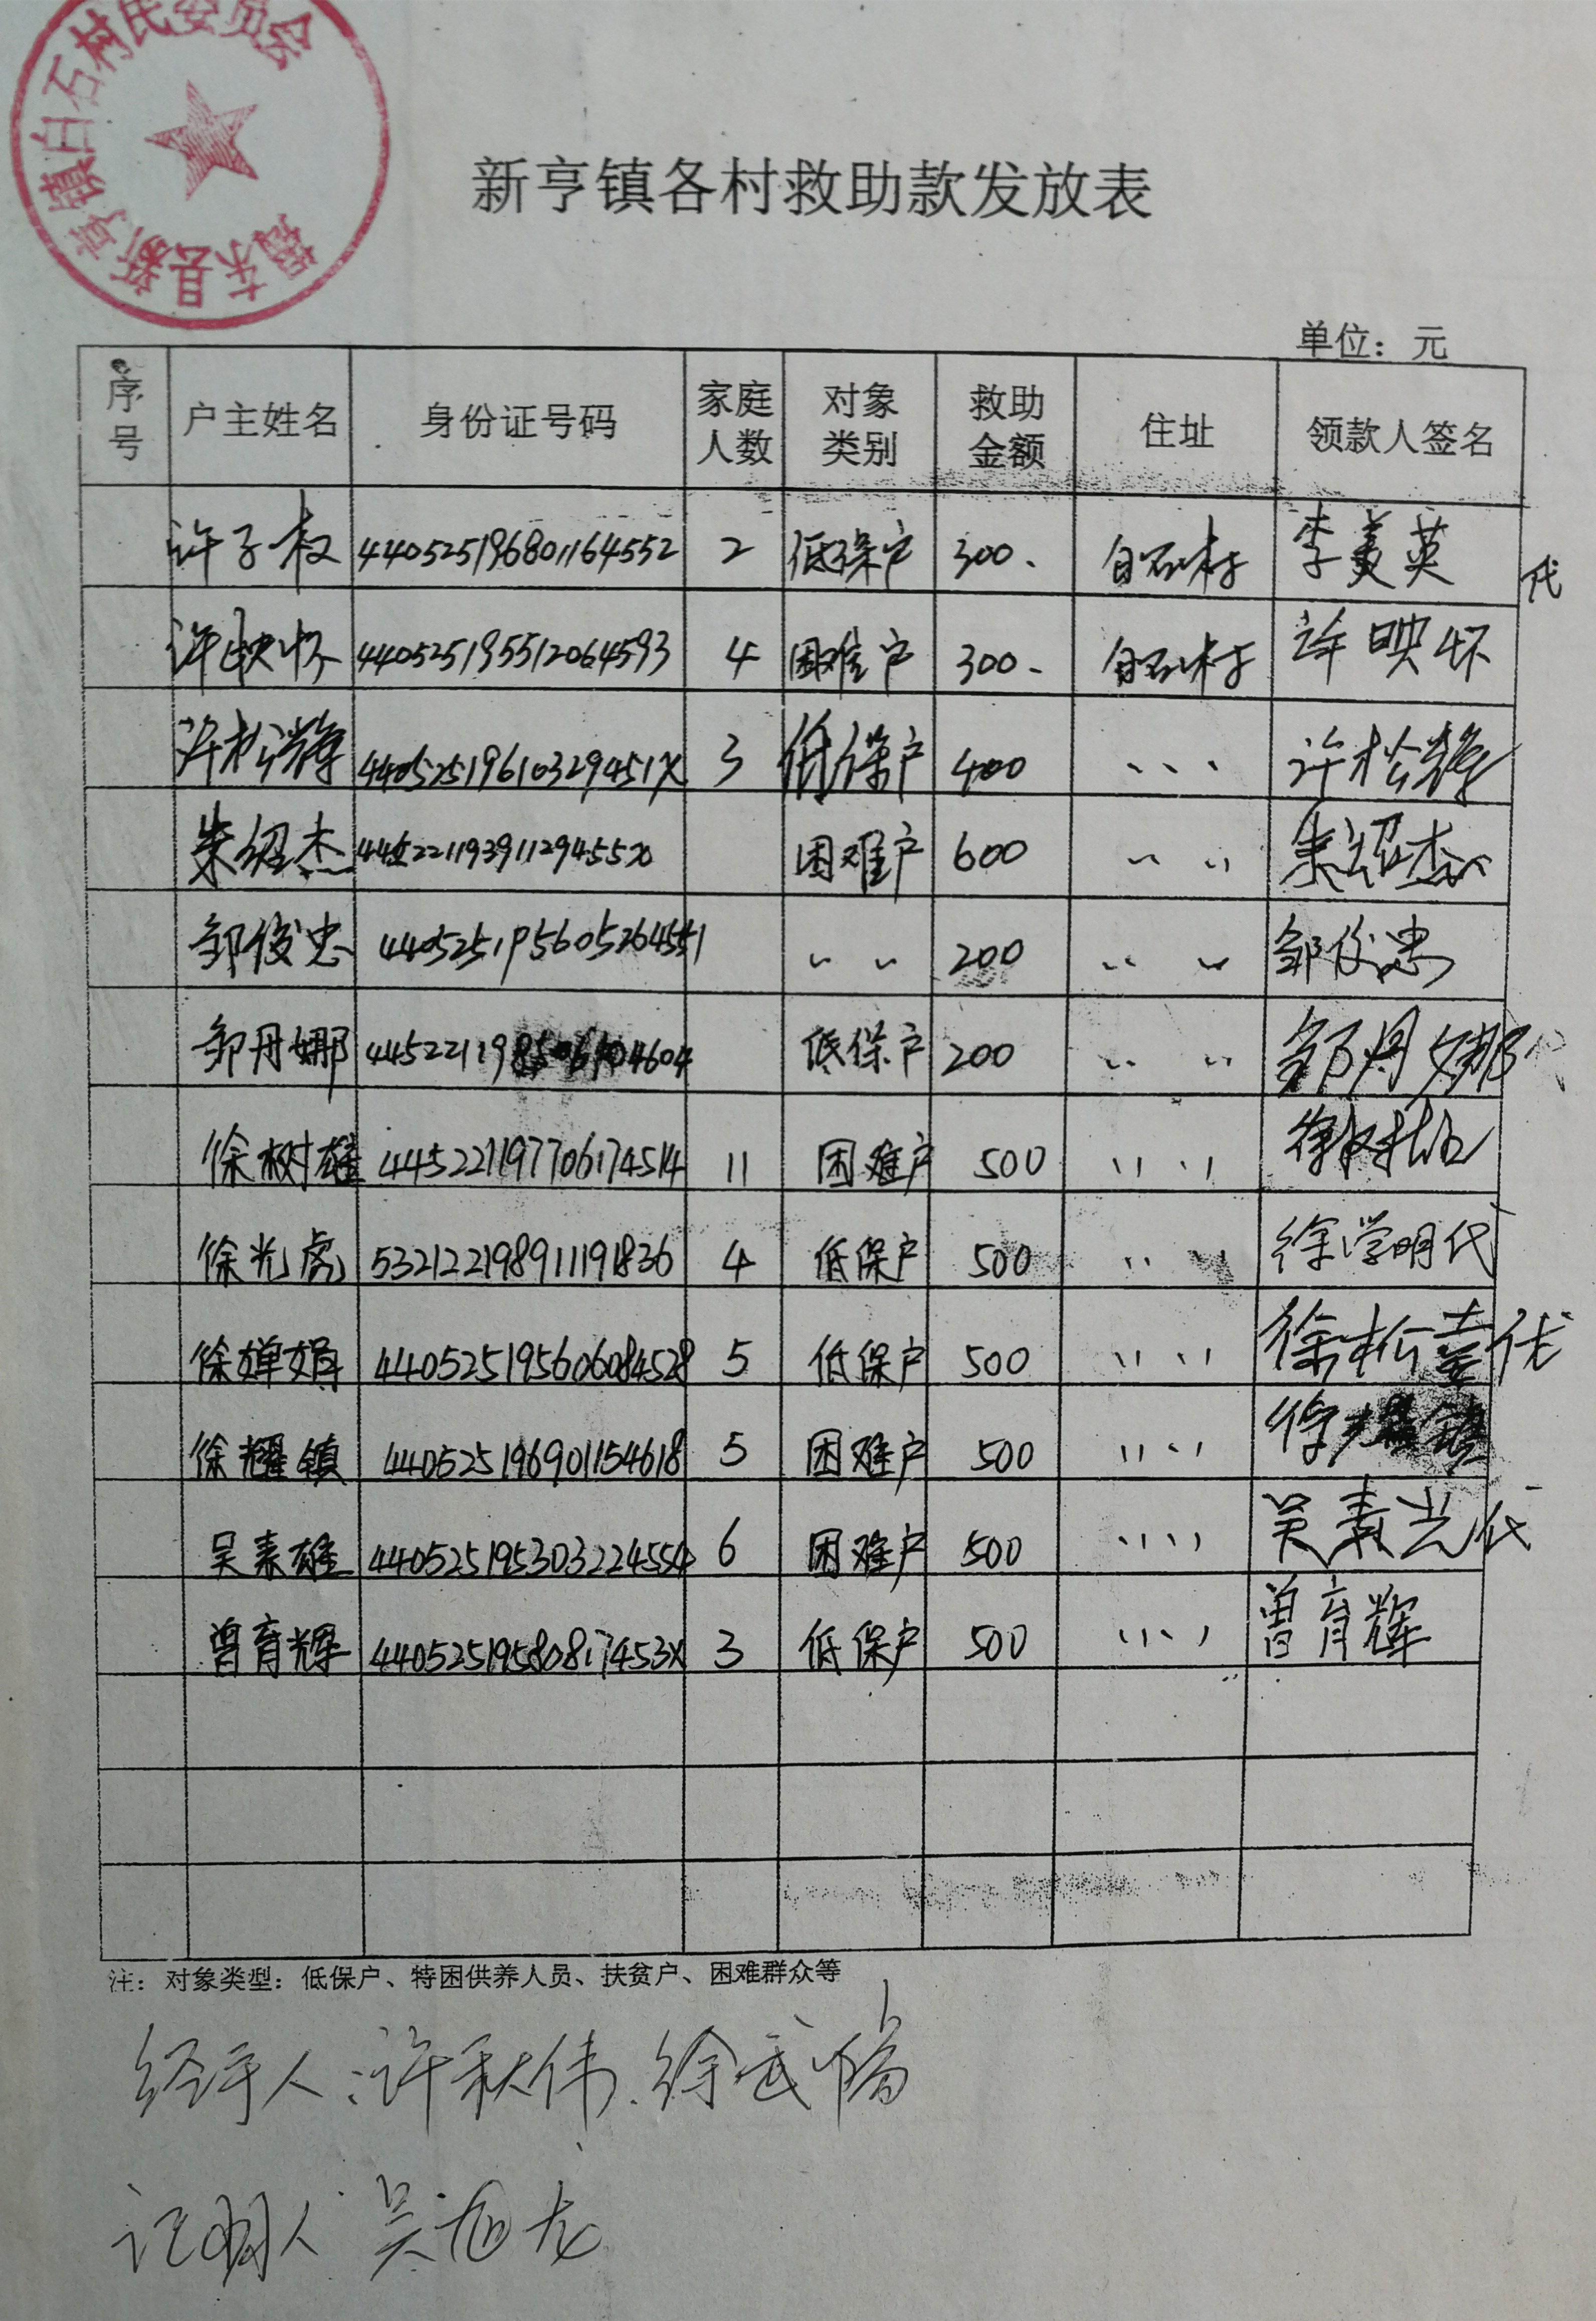 揭东县新亨镇白石村民委员会
新亨镇各村救助款发放表
单位：元
序号 户主姓名 身份证号码 家庭人数 对象类别 救助金额 住址 领款人签名
许子权 440525196801164552 2 低保户 300. 白石村 李美英 代
许映怀 440525195512064593 4 困难户 300- 白石村 许映怀
许松辉 44052519610329451X 3 低保户 400 、、、 许松辉
朱绍杰 困难户 600 〃 〃 朱绍杰
邹俊忠 440525195605264551 〃 〃 200 〃 〃 邹俊忠
邹丹娜 低保户 200 〃 〃 邹丹娜 代
徐树雄 445221197706174514 11 困难户 500 〃 〃
徐光虎 532122198911191836 4 低保户 500 〃 〃 徐学明代
徐婵娟 440525195606084528 5 低保户 500 〃 〃 徐松 代
徐耀镇 440525196901154618 5 困难户 500 〃 〃 徐耀镇
吴素雄 440525195303224554 6 困难户 500 〃 〃 吴素光 代
曾育辉 44052519580817453X 3 低保户 500 〃 〃 曾育辉
注：对象类型：低保户、特困供养人员、扶贫户、困难群众等
经手人：许秋伟、徐武
证明人：吴旭龙